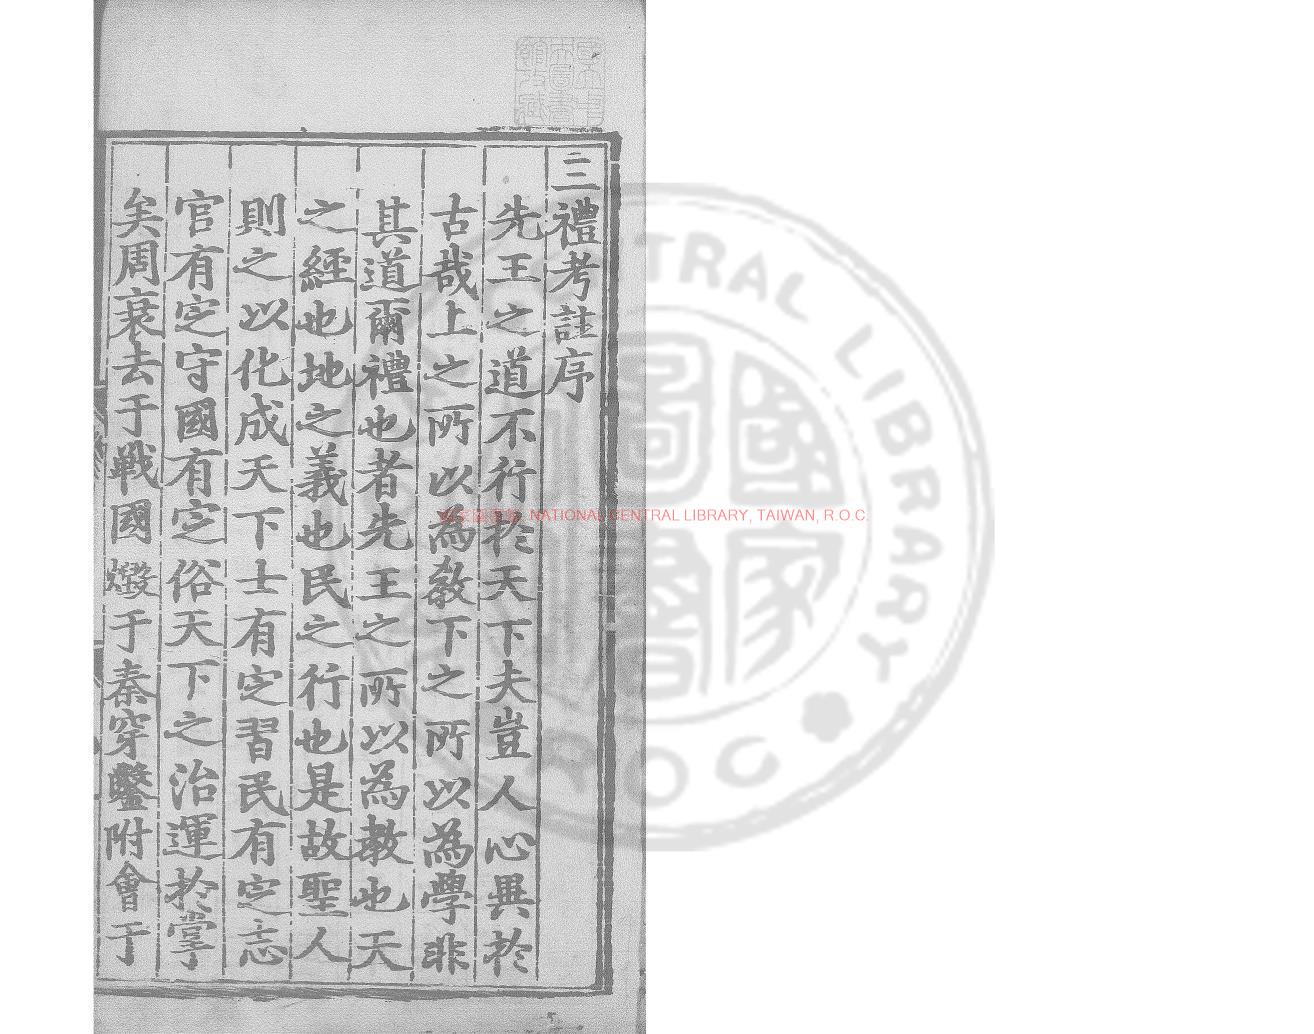 三禮考註序
先王之道不行於天下夫豈人心異於
古哉上之所以為教下之所以為學非
其道爾禮也者先王之所以為教也天
之經也地之義也民之行也是故聖人
則之以化成天下士有定習民有定志
官有定守國有定俗天下之治運於掌
矣周衰去于戰國燬于秦穿鑿附會于
NATIONAL CENTRAL LIBRARY, TAIWAN, R.O.C.